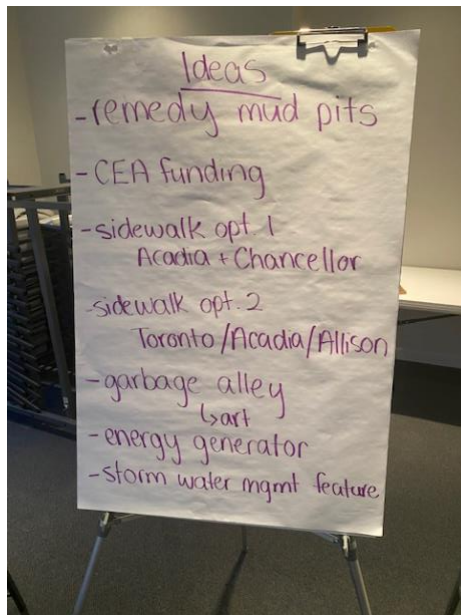 Ideas
- remedy mud pits
- CEA funding
- sidewalk opt. 1
Acadia + Chancellor
- sidewalk opt. 2
Toronto/Acadia/Allison
- garbage alley
↳ art
- energy generator
- storm water mgmt feature